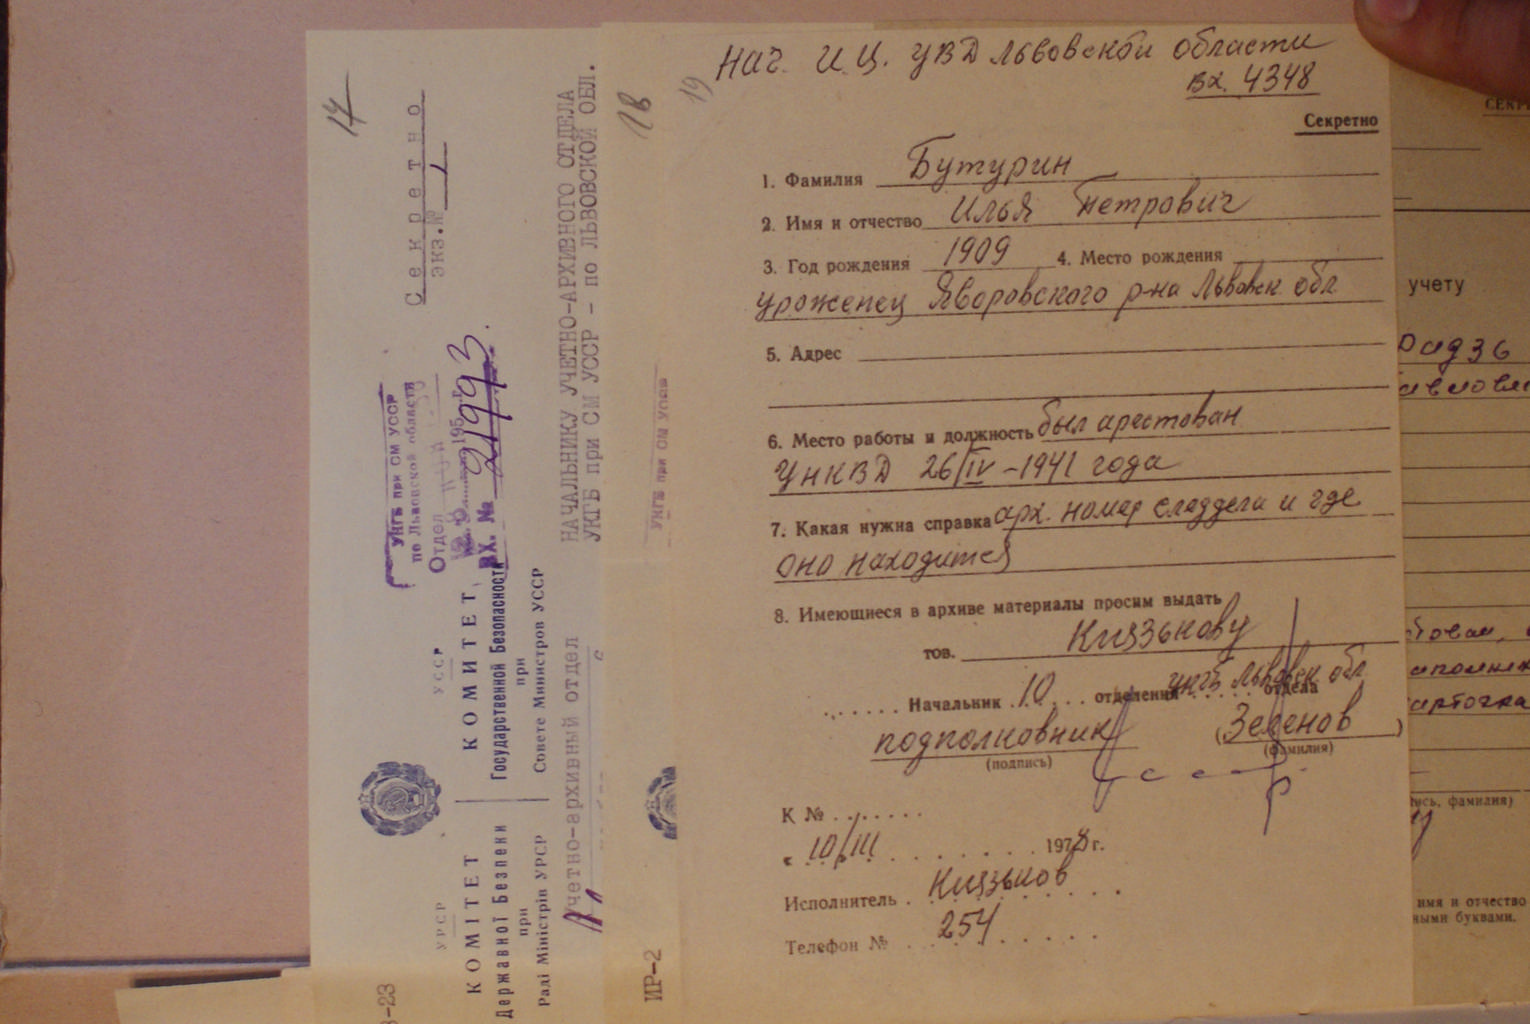 17
Секретно
экз.№ 1
УКГБ при СМ УССР
по Львовской области
Отдел
195 г.
ВХ. № 21993
УССР
КОМИТЕТ
Государственной Безопасности
при
Совете Министров УССР
УРСР
КОМІТЕТ
Державної Безпеки
при
Раді Міністрів УРСР
Учетно-архивный отдел
НАЧАЛЬНИКУ УЧЕТНО-АРХИВНОГО ОТДЕЛА
УКГБ при СМ УССР - по ЛЬВОВСКОЙ ОБЛ.
-23
18
УКГБ при СМ УССР
ИР-2
19
Нач. И.Ц. УВД Львовской области
вх. 4348
Секретно
1. Фамилия Бутурин
2. Имя и отчество Илья Петрович
3. Год рождения 1909 4. Место рождения
уроженец Яворовского р-на Львовск обл
5. Адрес
6. Место работы и должность был арестован
УНКВД 26/IV-1941 года
7. Какая нужна справка арх. номер следдела и где
оно находится
8. Имеющиеся в архиве материалы просим выдать
тов. Князькову
Начальник 10 отделения УКГБ Львовск обл отдела
подполковник (Зеленов)
(подпись) (фамилия)
К №
« 10/III 1978 г.
Исполнитель Князьков
Телефон № 254
СЕКР
учету
ись, фамилия)
имя и отчество
ными буквами.